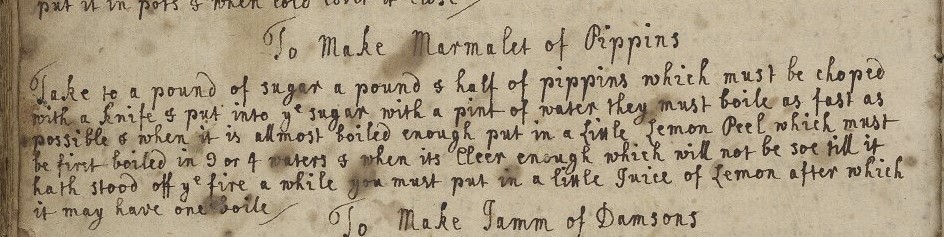 put it in pots & when cold cover it close
To Make Marmalet of Pippins
Take to a pound of sugar a pound & half of pippins which must be choped
with a knife & put into yᵉ sugar with a pint of water they must boile as fast as
possible & when it is allmost boiled enough put in a little Lemon Peel which must
be first boiled in 3 or 4 waters & when its Cleer enough which will not be soe till it
hath stood off yᵉ fire a while you must put in a little Juice of Lemon after which
it may have one boile
To Make Jamm of Damsons